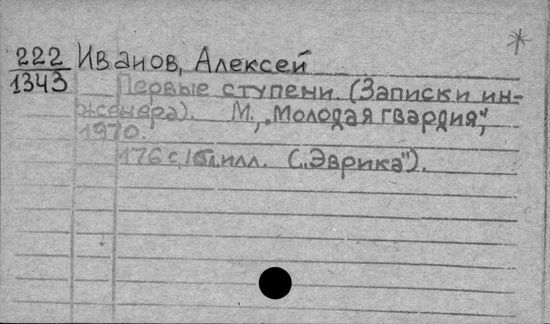 222 Иванов, Алексей *
1343 Первые ступени. (Записки ин-
женера). М., „Молодая гвардия",
1970.
176 с., ил. („Эврика").